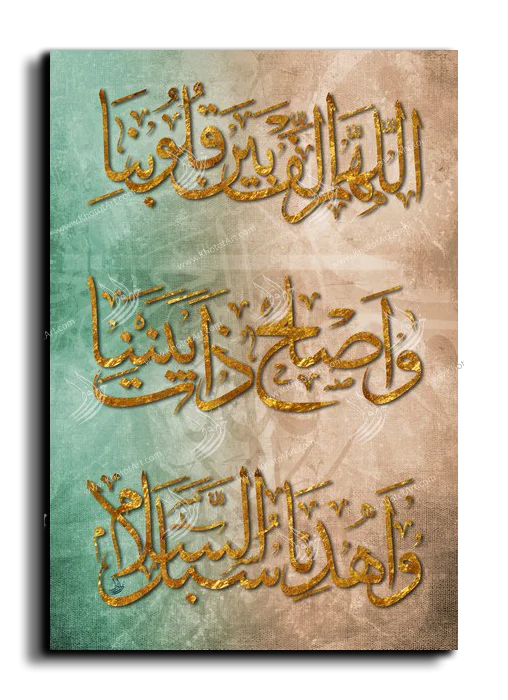 اللَّهُمَّ أَلِّفْ بَيْنَ قُلُوبِنَا
وَأَصْلِحْ ذَاتَ بَيْنِنَا
وَاهْدِنَا سُبُلَ السَّلَامِ
www.KhotatArt.com